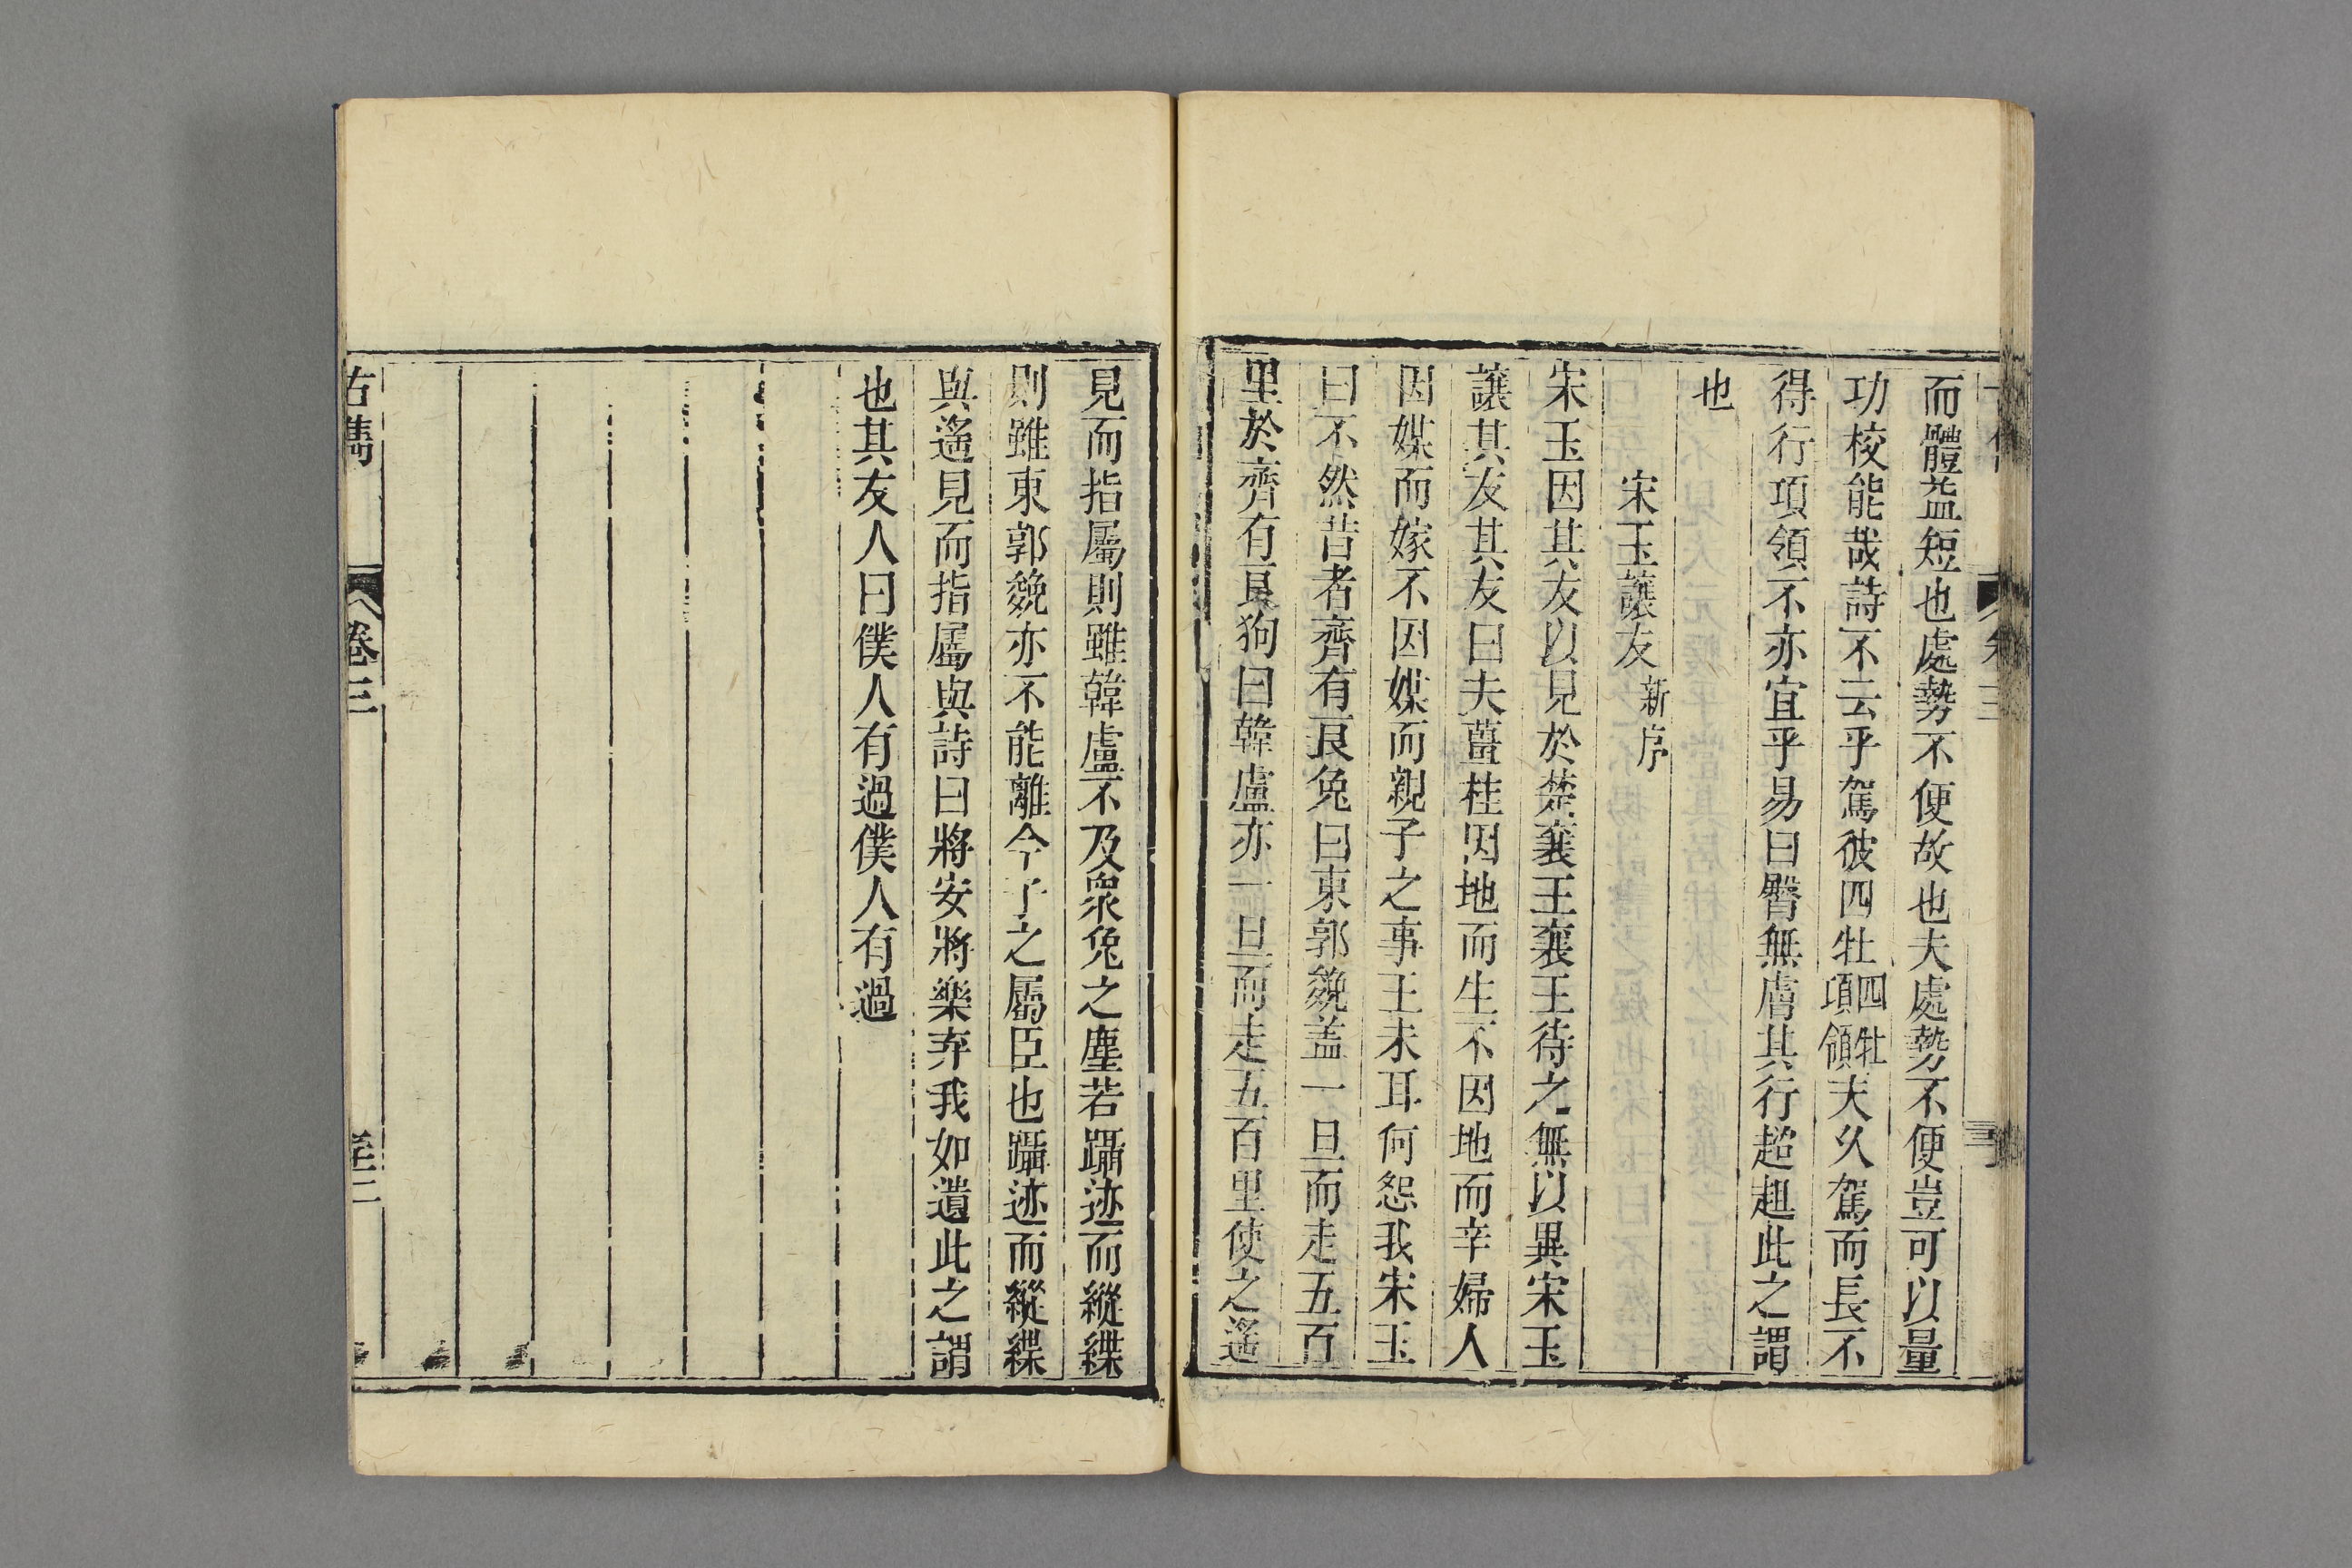 而體益短也處勢不便故也夫處勢不便豈可以量
功校能哉詩不云乎駕彼四牡四牡項領夫久駕而長不
得行項領不亦宜乎易曰臀無膚其行趑趄此之謂
也
宋玉讓友 新序
宋玉因其友以見於楚襄王襄王待之無以異宋玉
讓其友其友曰夫薑桂因地而生不因地而辛婦人
因媒而嫁不因媒而親子之事王未耳何怨我宋玉
曰不然昔者齊有良兔曰東郭㕙盖一旦而走五百
里於齊有良狗曰韓盧亦一旦而走五百里使之遙
見而指屬則雖韓盧不及衆兔之塵若躡迹而縱緤
則雖東郭㕙亦不能離今子之屬臣也躡迹而縱緤
與遙見而指屬與詩曰將安將樂弃我如遺此之謂
也其友人曰僕人有過僕人有過
古雋 卷三 三十二